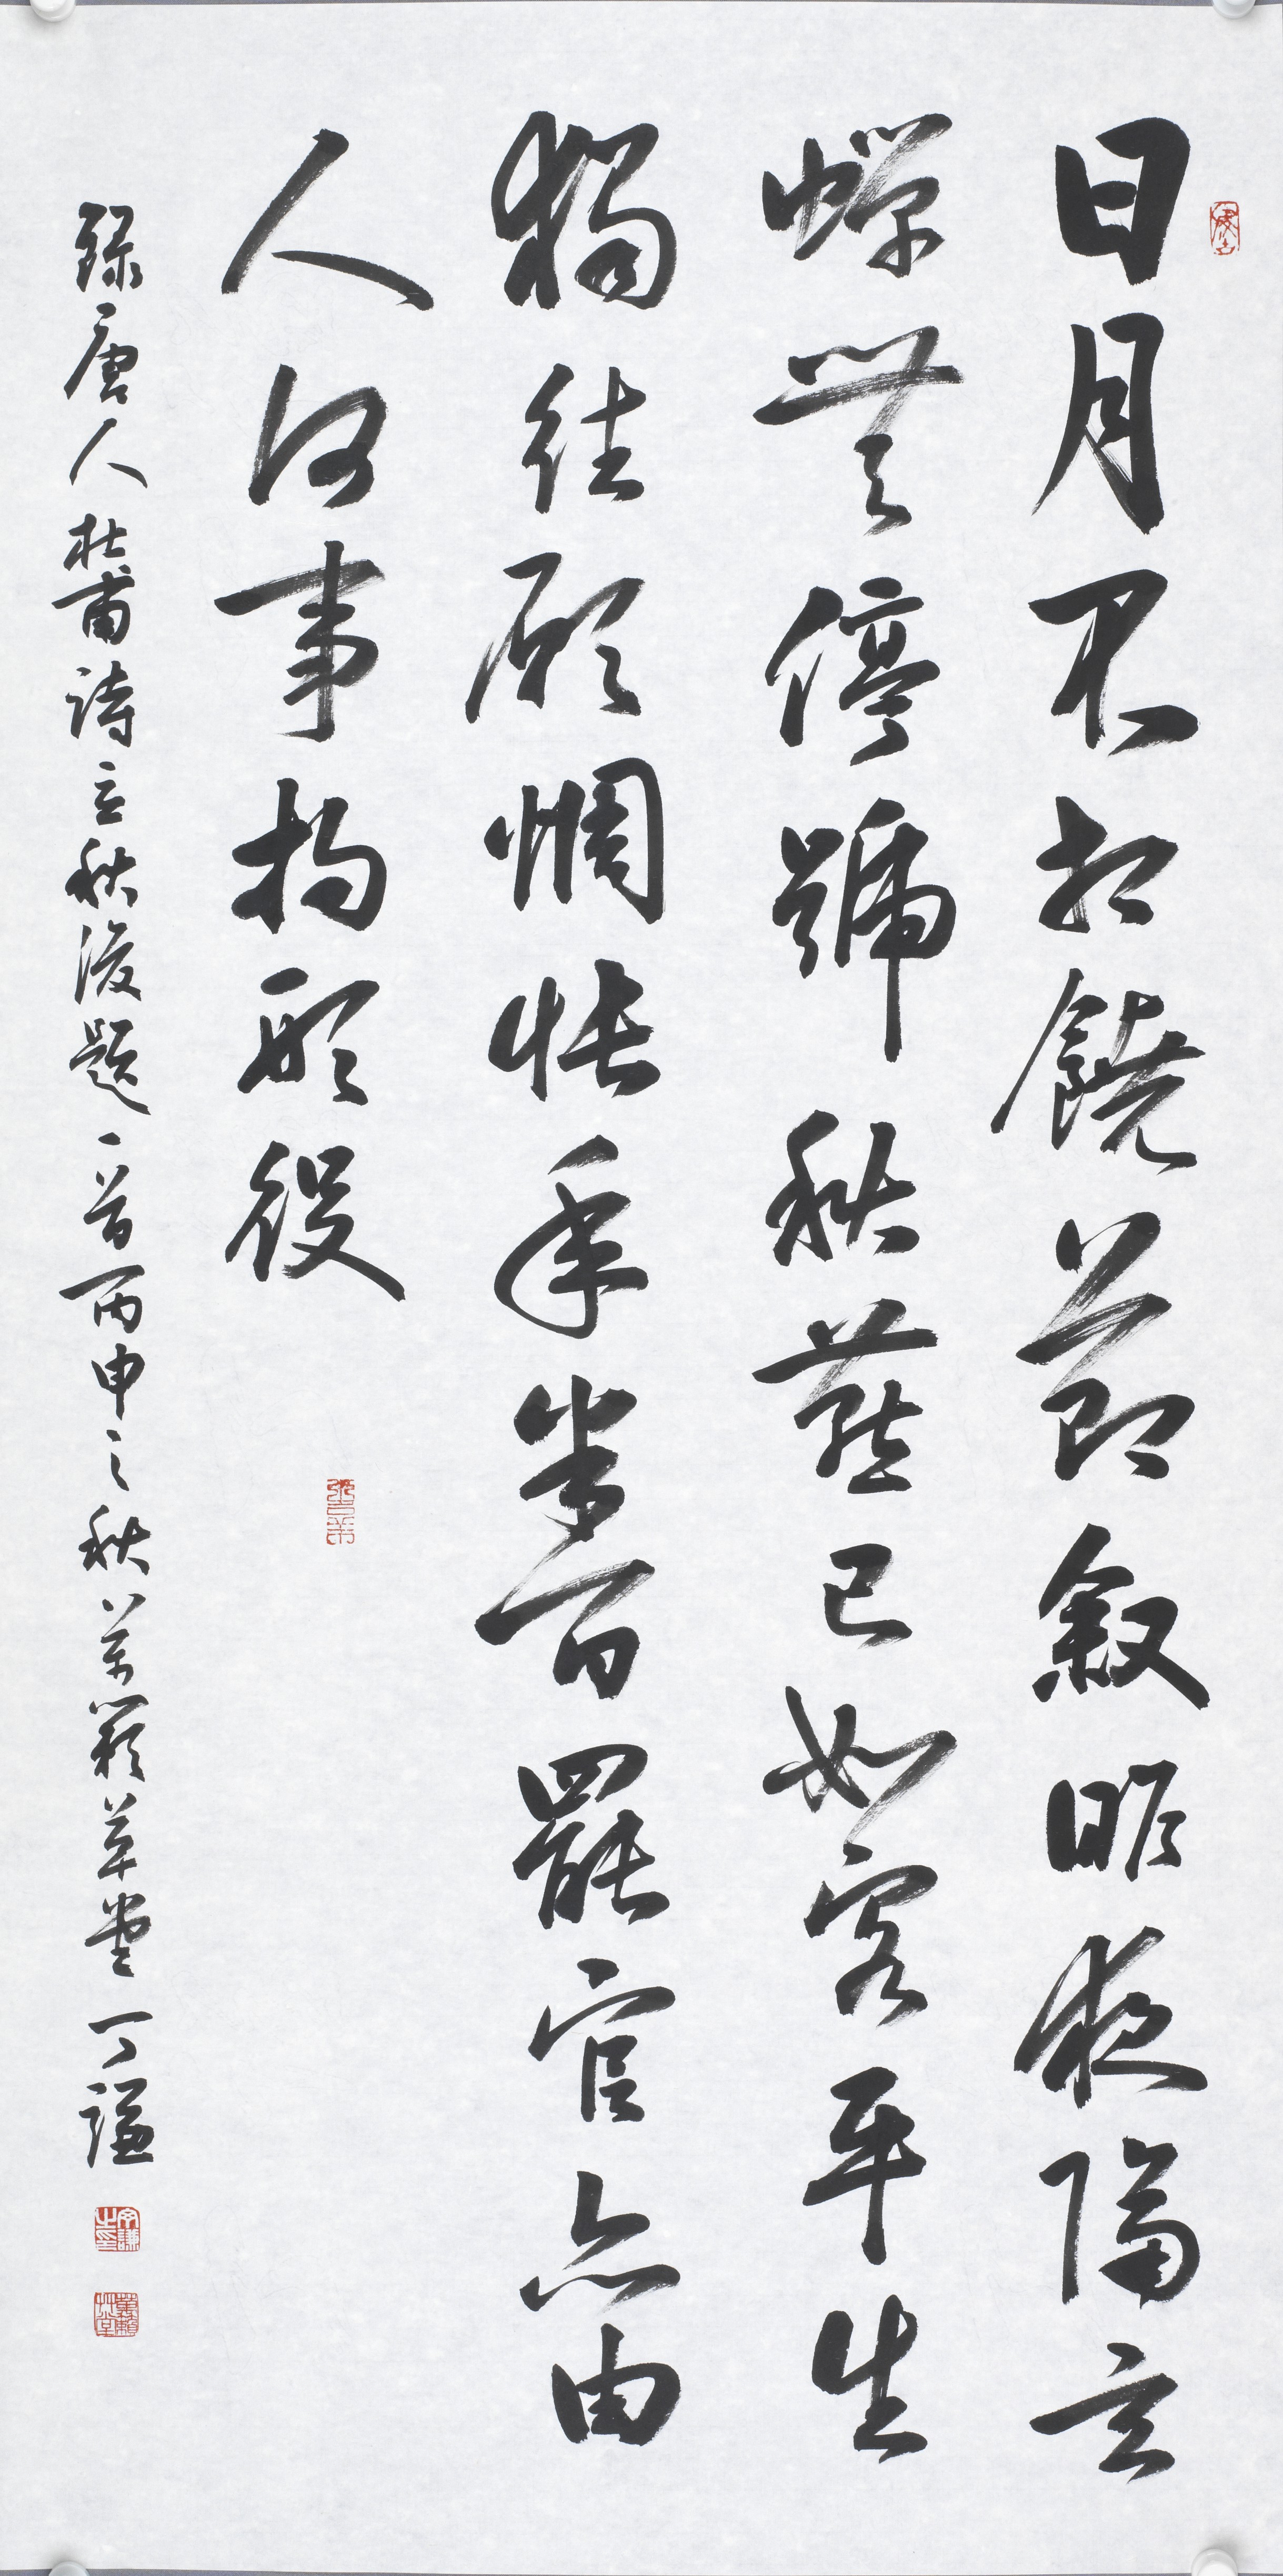 日月不相饒節叙昨夜隔玄
蟬無停號秋燕已如客平生
獨往願惆悵年半百罷官亦由
人何事拘形役
錄唐人杜甫詩立秋後題一首丙申之秋萬籟草堂丁謙